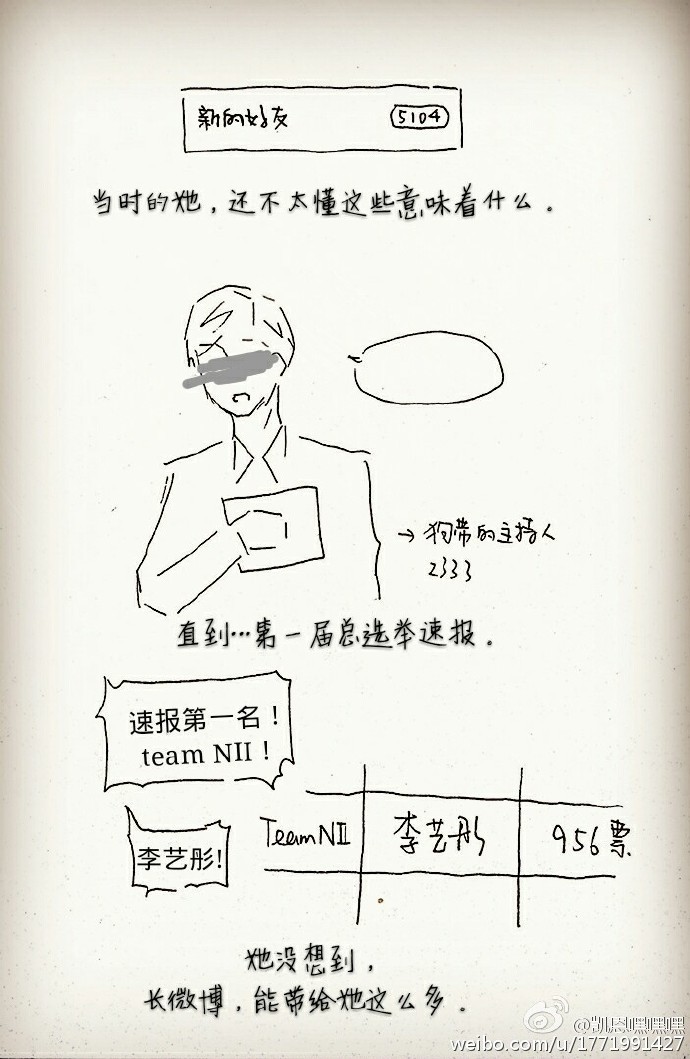 新的好友 5104
当时的她，还不太懂这些意味着什么。
→ 狗带的主持人
2333
直到…第一届总选举速报。
速报第一名！
team NII！
李艺彤!
TeamNII 李艺彤 956票
她没想到，
长微博，能带给她这么多。
@凯恩嘿嘿嘿
weibo.com/u/1771991427